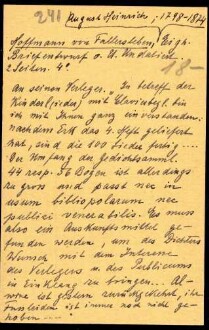 241
August Heinrich, 1798-1874
Hoffmann von Fallersleben, Eigh.
Briefentwurf o. U. Undatiert
2 Seiten. 4°.
18-
An seinen Verleger. „In betreff der
Kinderlieder mit Clavierbegl. bin
ich mit Ihnen ganz einverstanden:
nachdem Erk das 4. Heft geliefert
hat, sind die 100 Lieder fertig ....
Der Umfang der Gedichtsamml.
44 resp. 36 Bogen ist allerdings
zu gross und passt nec in
usum bibliopolarum nec
publici venerabilis. Es muss
also ein Auskunftsmittel ge-
funden werden, um des Dichters
Wunsch mit dem Interesse
des Verlegers u. des Publicums
in Einklang zu bringen... Al-
wine ist gestern zurückgekehrt, ihr
Fussleiden ist immer noch nicht ge-
hoben ....."